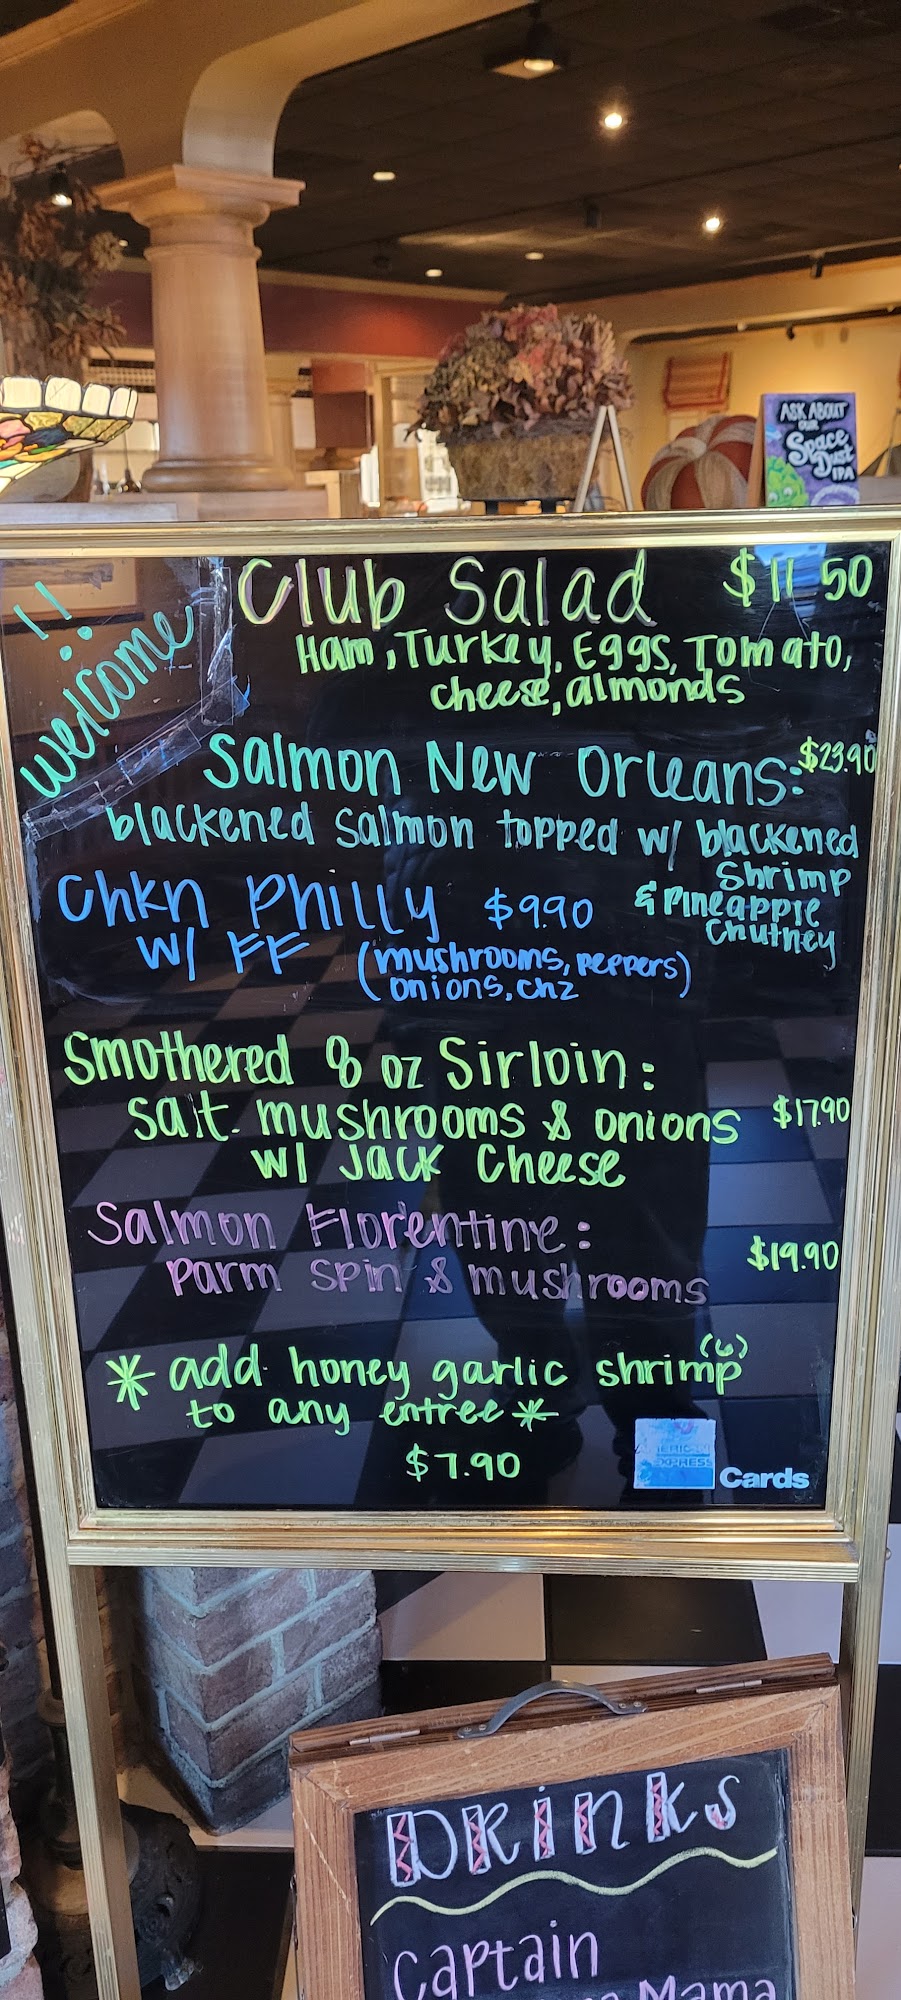 ASK ABOUT
OUR
Space
Dust
IPA
welcome!!
Club Salad $11.50
Ham, Turkey, Eggs, Tomato,
cheese, almonds
Salmon New Orleans: $23.90
blackened salmon topped w/ blackened
shrimp
& pineapple
chutney
Chkn Philly $9.90
w/ FF (mushrooms, peppers)
onions, chz
Smothered 8 oz Sirloin:
Saút. mushrooms & onions $17.90
w/ Jack Cheese
Salmon Florentine:
$19.90
Parm spin & mushrooms
* add honey garlic shrimp (6)
to any entree *
$7.90
AMERICAN
EXPRESS
Cards
DRinks
Captain
Mama